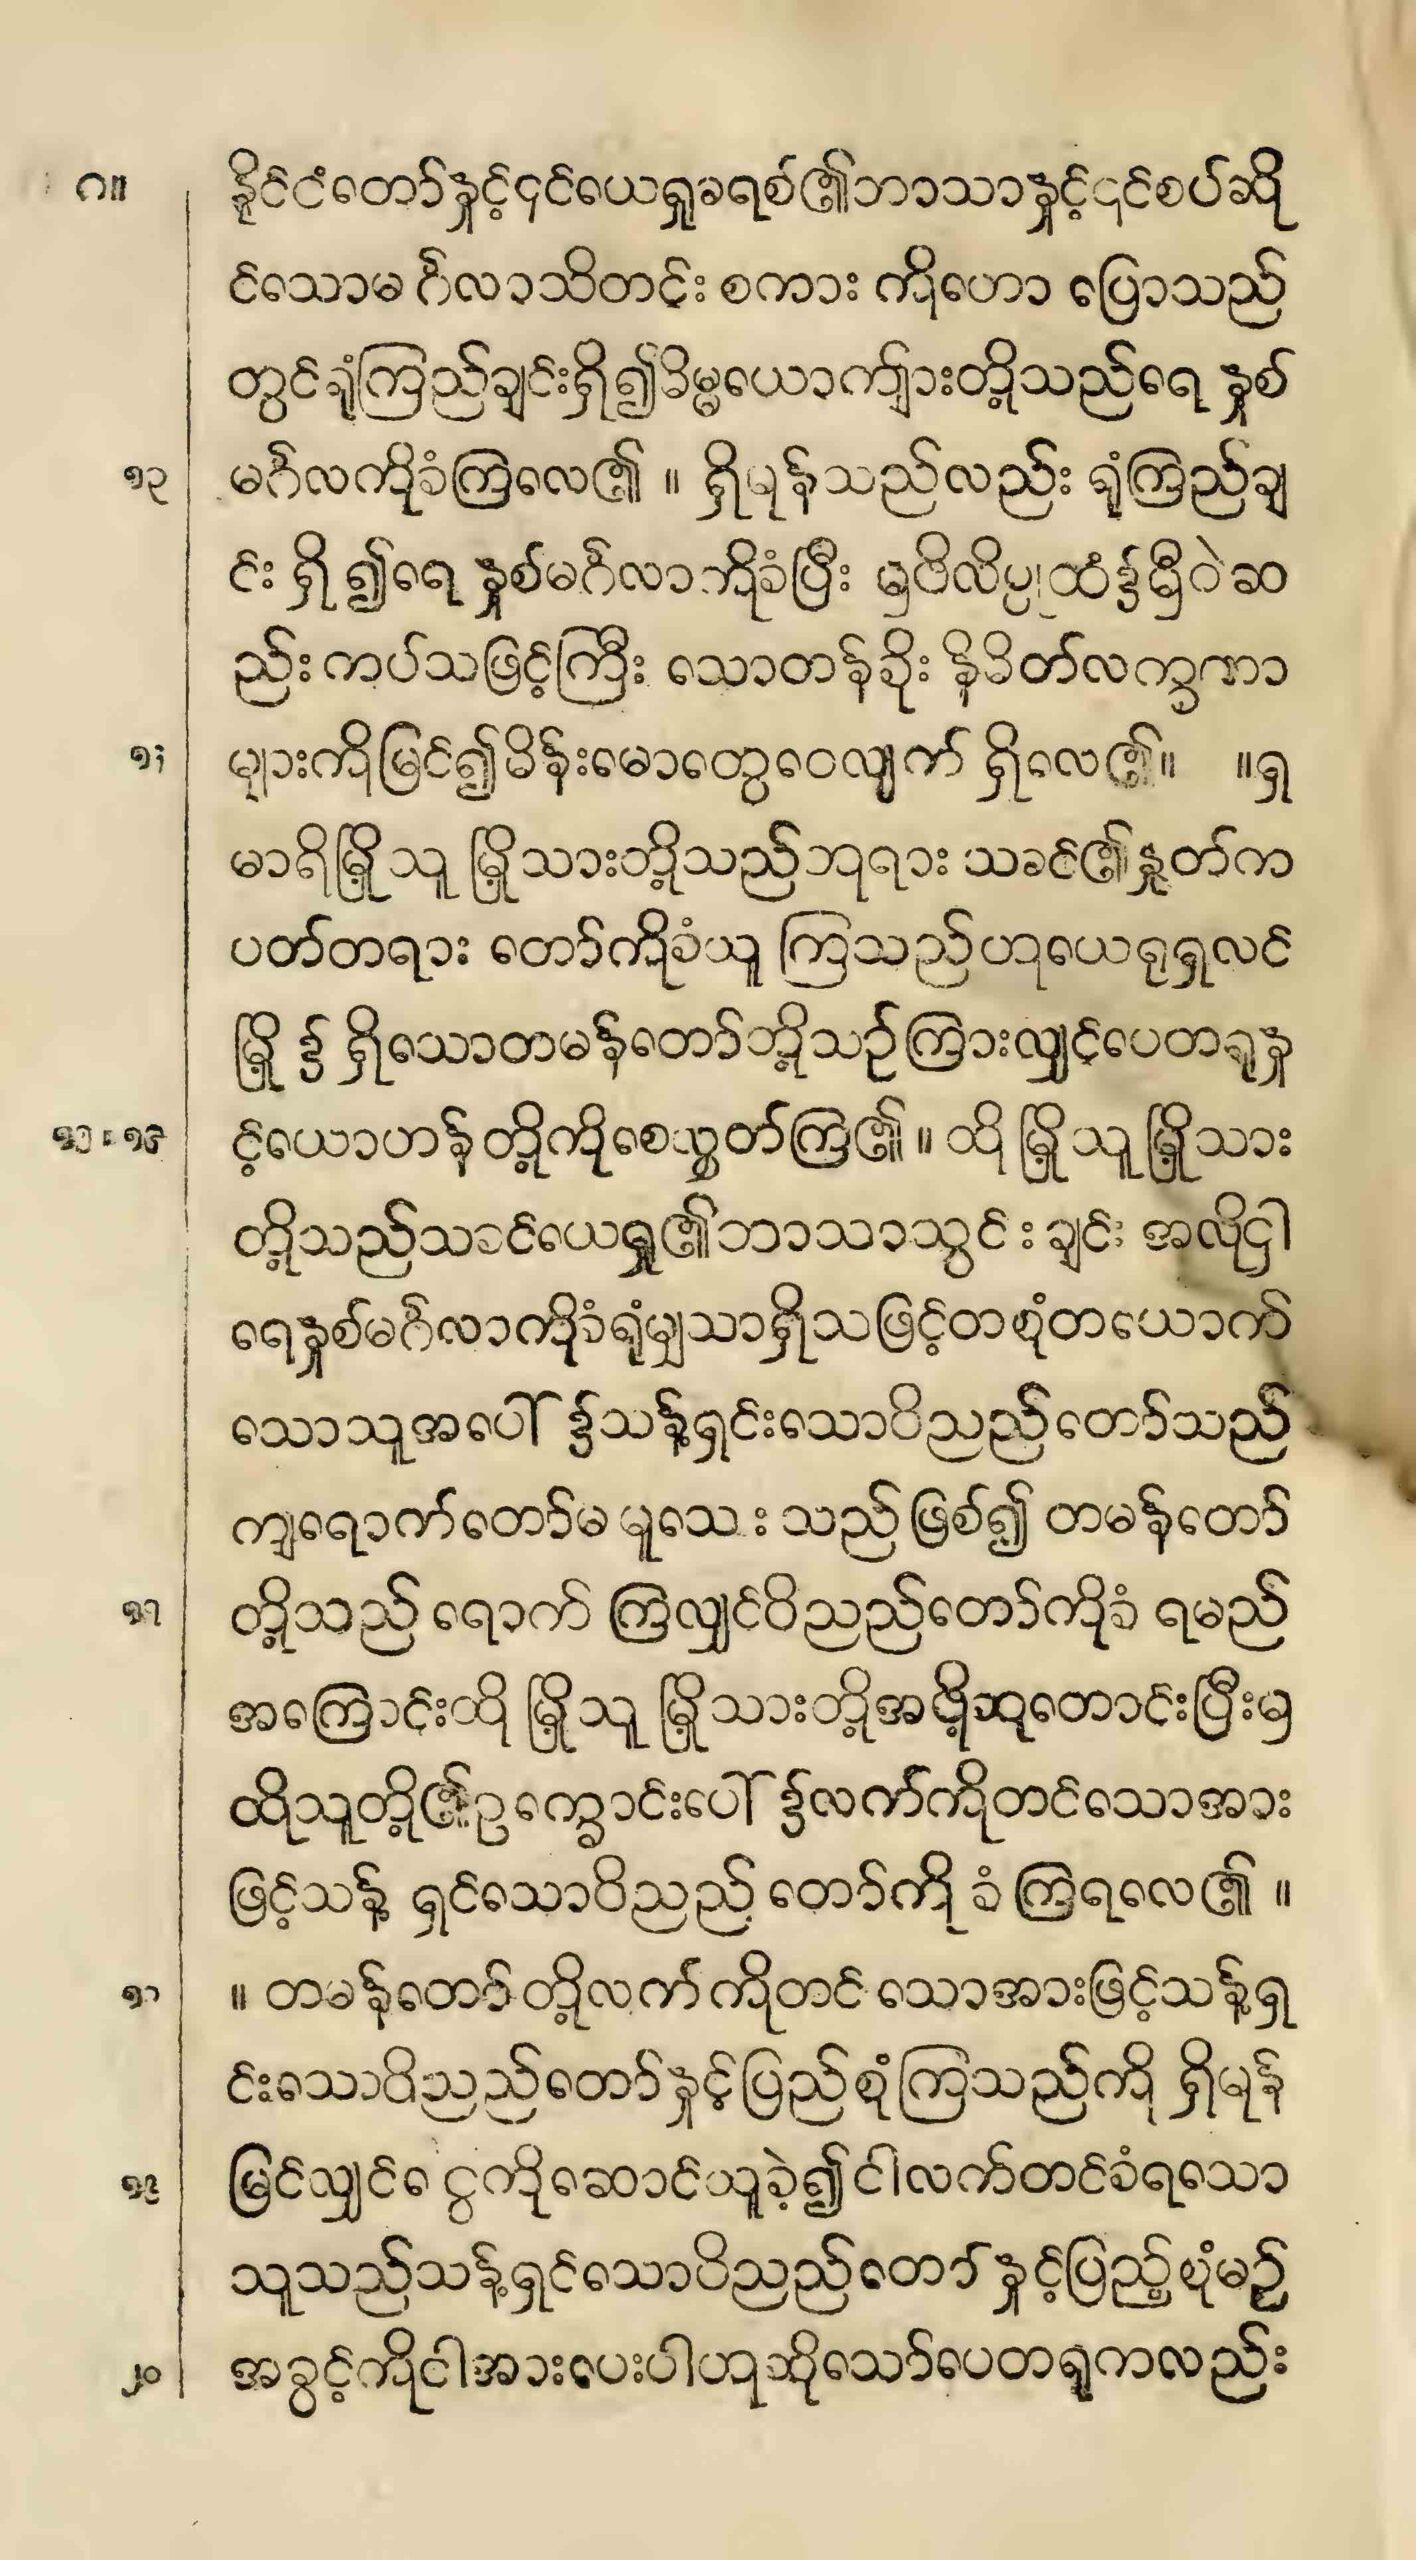 ဂ။ နိုင်ငံတော်နှင့်၎င်ယေရှုခရစ်၏ဘာသာနှင့်၎င်စပ်ဆို
င်သောမင်္ဂလာသိတင်း စကား ကိုဟော ပြောသည်
တွင်ရုံကြည်ချင်းရှိ၍မိမ္မယောက်ျားတို့သည်ရေ နှစ်
၁၃ မင်္ဂလကိုခံကြလေ၏ ။ ရှိမုန်သည်လည်း ရုံကြည်ချ
င်း ရှိ ၍ရေ နှစ်မင်္ဂလာကိုခံပြီး မှဖိလိပ္ပုထံ၌မှီဝဲဆ
ည်းကပ်သဖြင့်ကြီး သောတန်ခိုး နိမိတ်လက္ခဏာ
၁၄ များကိုမြင်၍မိန်းမောတွေဝေလျက် ရှိလေ၏။ ။ရှ
မာရိမြို့သူ မြို့သားတို့သည်ဘုရား သခင်၏နှုတ်က
ပတ်တရား တော်ကိုခံယူ ကြသည်ဟုယေရုရှလင်
မြို့ ၌ ရှိသောတမန်တော်တို့သဉ်ကြားလျှင်ပေတရုနှ
၁၅။၁၆ င့်ယောဟန်တို့ကိုစေလွှတ်ကြ၏။ ထို မြို့သူ မြို့သား
တို့သည်သခင်ယေရှု၏ဘာသာသွင်း ချင်း အလို့ငှါ
ရေနှစ်မင်္ဂလာကိုခံရုံမျှသာရှိသဖြင့်တစုံတယောက်
သောသူအပေါ်၌သန့်ရှင်းသောဝိညည်တော်သည်
ကျရောက်တော်မ မူသေး သည်ဖြစ်၍ တမန်တော်
၁၇ တို့သည် ရောက် ကြလျှင်ဝိညည်တော်ကိုခံ ရမည်
အကြောင်းထို မြို့သူ မြို့သားတို့အဖို့ဆုတောင်းပြီးမှ
ထိုသူတို့၏ဥက္ခောင်းပေါ်၌လက်ကိုတင်သောအား
ဖြင့်သန့် ရှင်သောဝိညည် တော်ကို ခံ ကြရလေ၏ ။
၁၈ ။ တမန်တော်တို့လက်ကိုတင်သောအားဖြင့်သန့်ရှ
င်းသောဝိညည်တော်နှင့်ပြည်စုံကြသည်ကို ရှိမုန်
၁၉ မြင်လျှင်ငွေကိုဆောင်ယူခဲ့၍ငါလက်တင်ခံရသော
သူသည်သန့်ရှင်သောဝိညည်တော်နှင့်ပြည့်စုံမဉ်
၂၀ အခွင့်ကိုငါအားပေးပါဟုဆိုသော်ပေတရုကလည်း